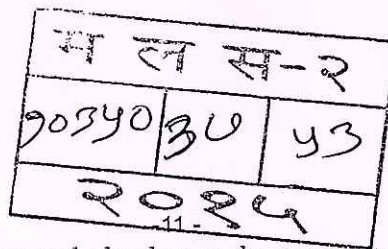 म ल स-२
१०३५० ३७ ५३
२०१५
-11-